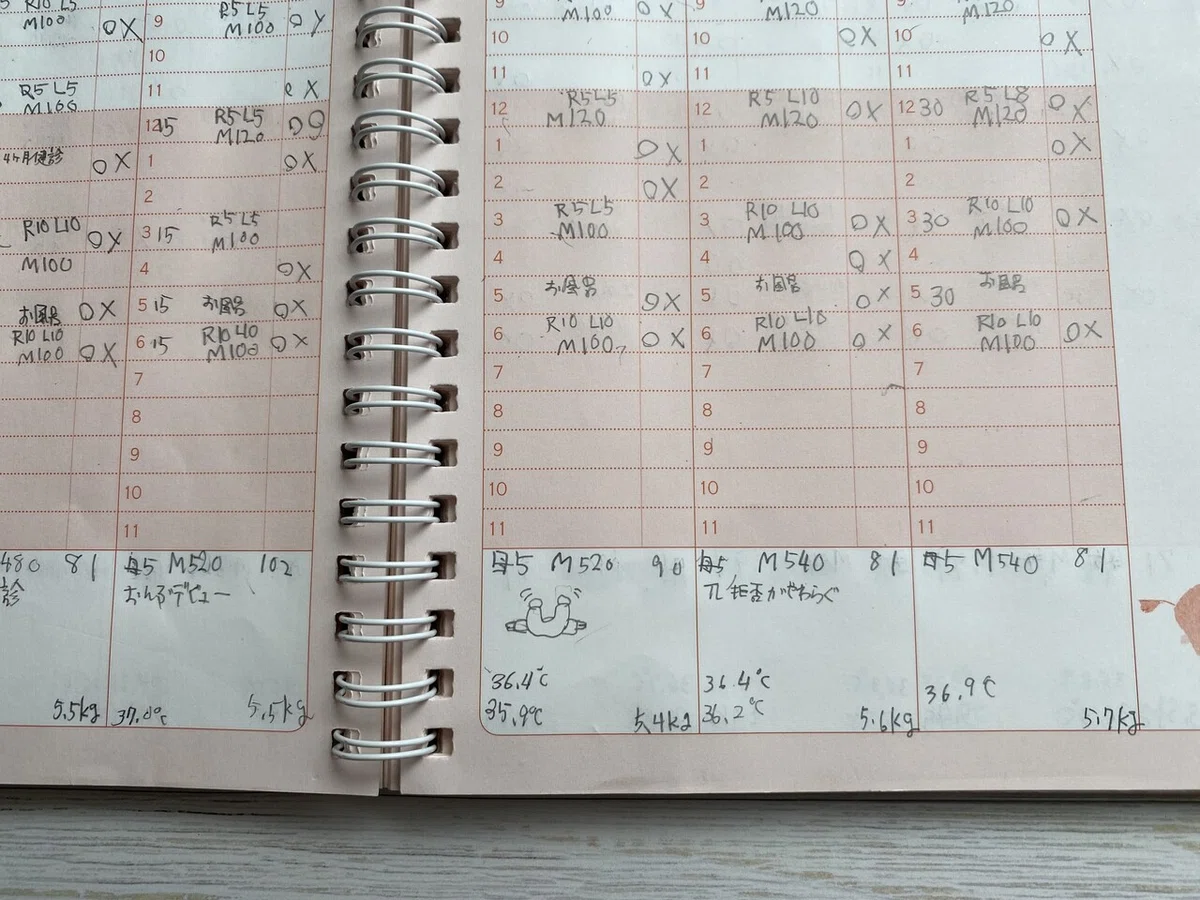 R10 L5
M100 ○X
R5 L5
M100
4ヶ月健診 ○X
R10 L10 ○X
M100
お風呂 ○X
R10 L10
M100 ○X
480 81
診
5.5kg
9 R5 L5
M100 ○
10
11 X
12 15 R5 L5
M120 ○○
1 ○X
2
3 15 R5 L5
M100
4 ○X
5 15 お風呂 ○X
6 15 R10 L10
M100 ○X
7
8
9
10
11
母5 M520 102
おんぶデビュー
5.5kg
9 M100 ○X
10
11 ○X
12 R5 L5
M120
1 ○X
2 ○X
3 R5 L5
M100
4
5 お風呂 ○X
6 R10 L10
M100 ○X
7
8
9
10
11
母5 M520 90
36.4℃
35.9℃ 5.4kg
9 M120
10 ○X
11
12 R5 L10
M120 ○X
1
2
3 R10 L10
M100 ○X
4 ○X
5 お風呂 ○X
6 R10 L10
M100 ○X
7
8
9
10
11
母5 M540 81
拒否がやわらぐ
36.4℃
36.2℃ 5.6kg
9 M120
10 ○X
11
12 30 R5 L8
M120 ○X
1 ○X
2
3 30 R10 L10
M100 ○X
4
5 30 お風呂
6 R10 L10
M100 ○X
7
8
9
10
11
母5 M540 81
36.9℃
5.7kg